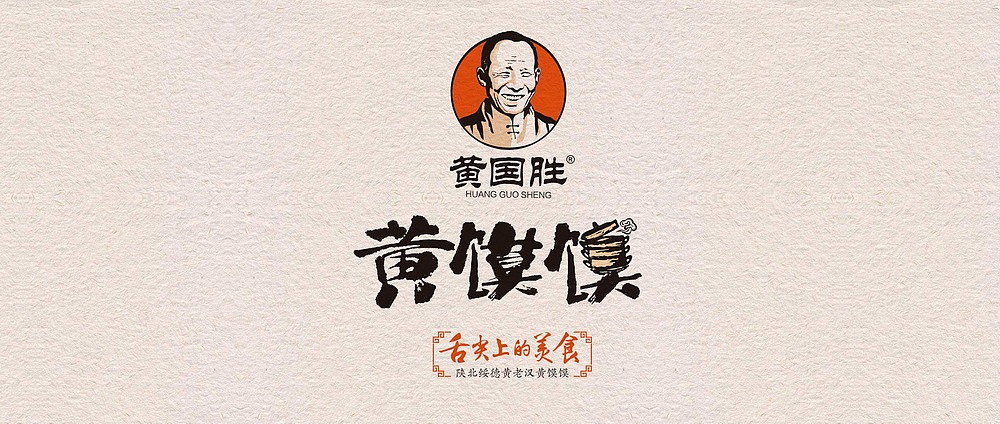 黄国胜®
HUANG GUO SHENG
黄馍馍
舌尖上的美食
陕北绥德黄老汉黄馍馍